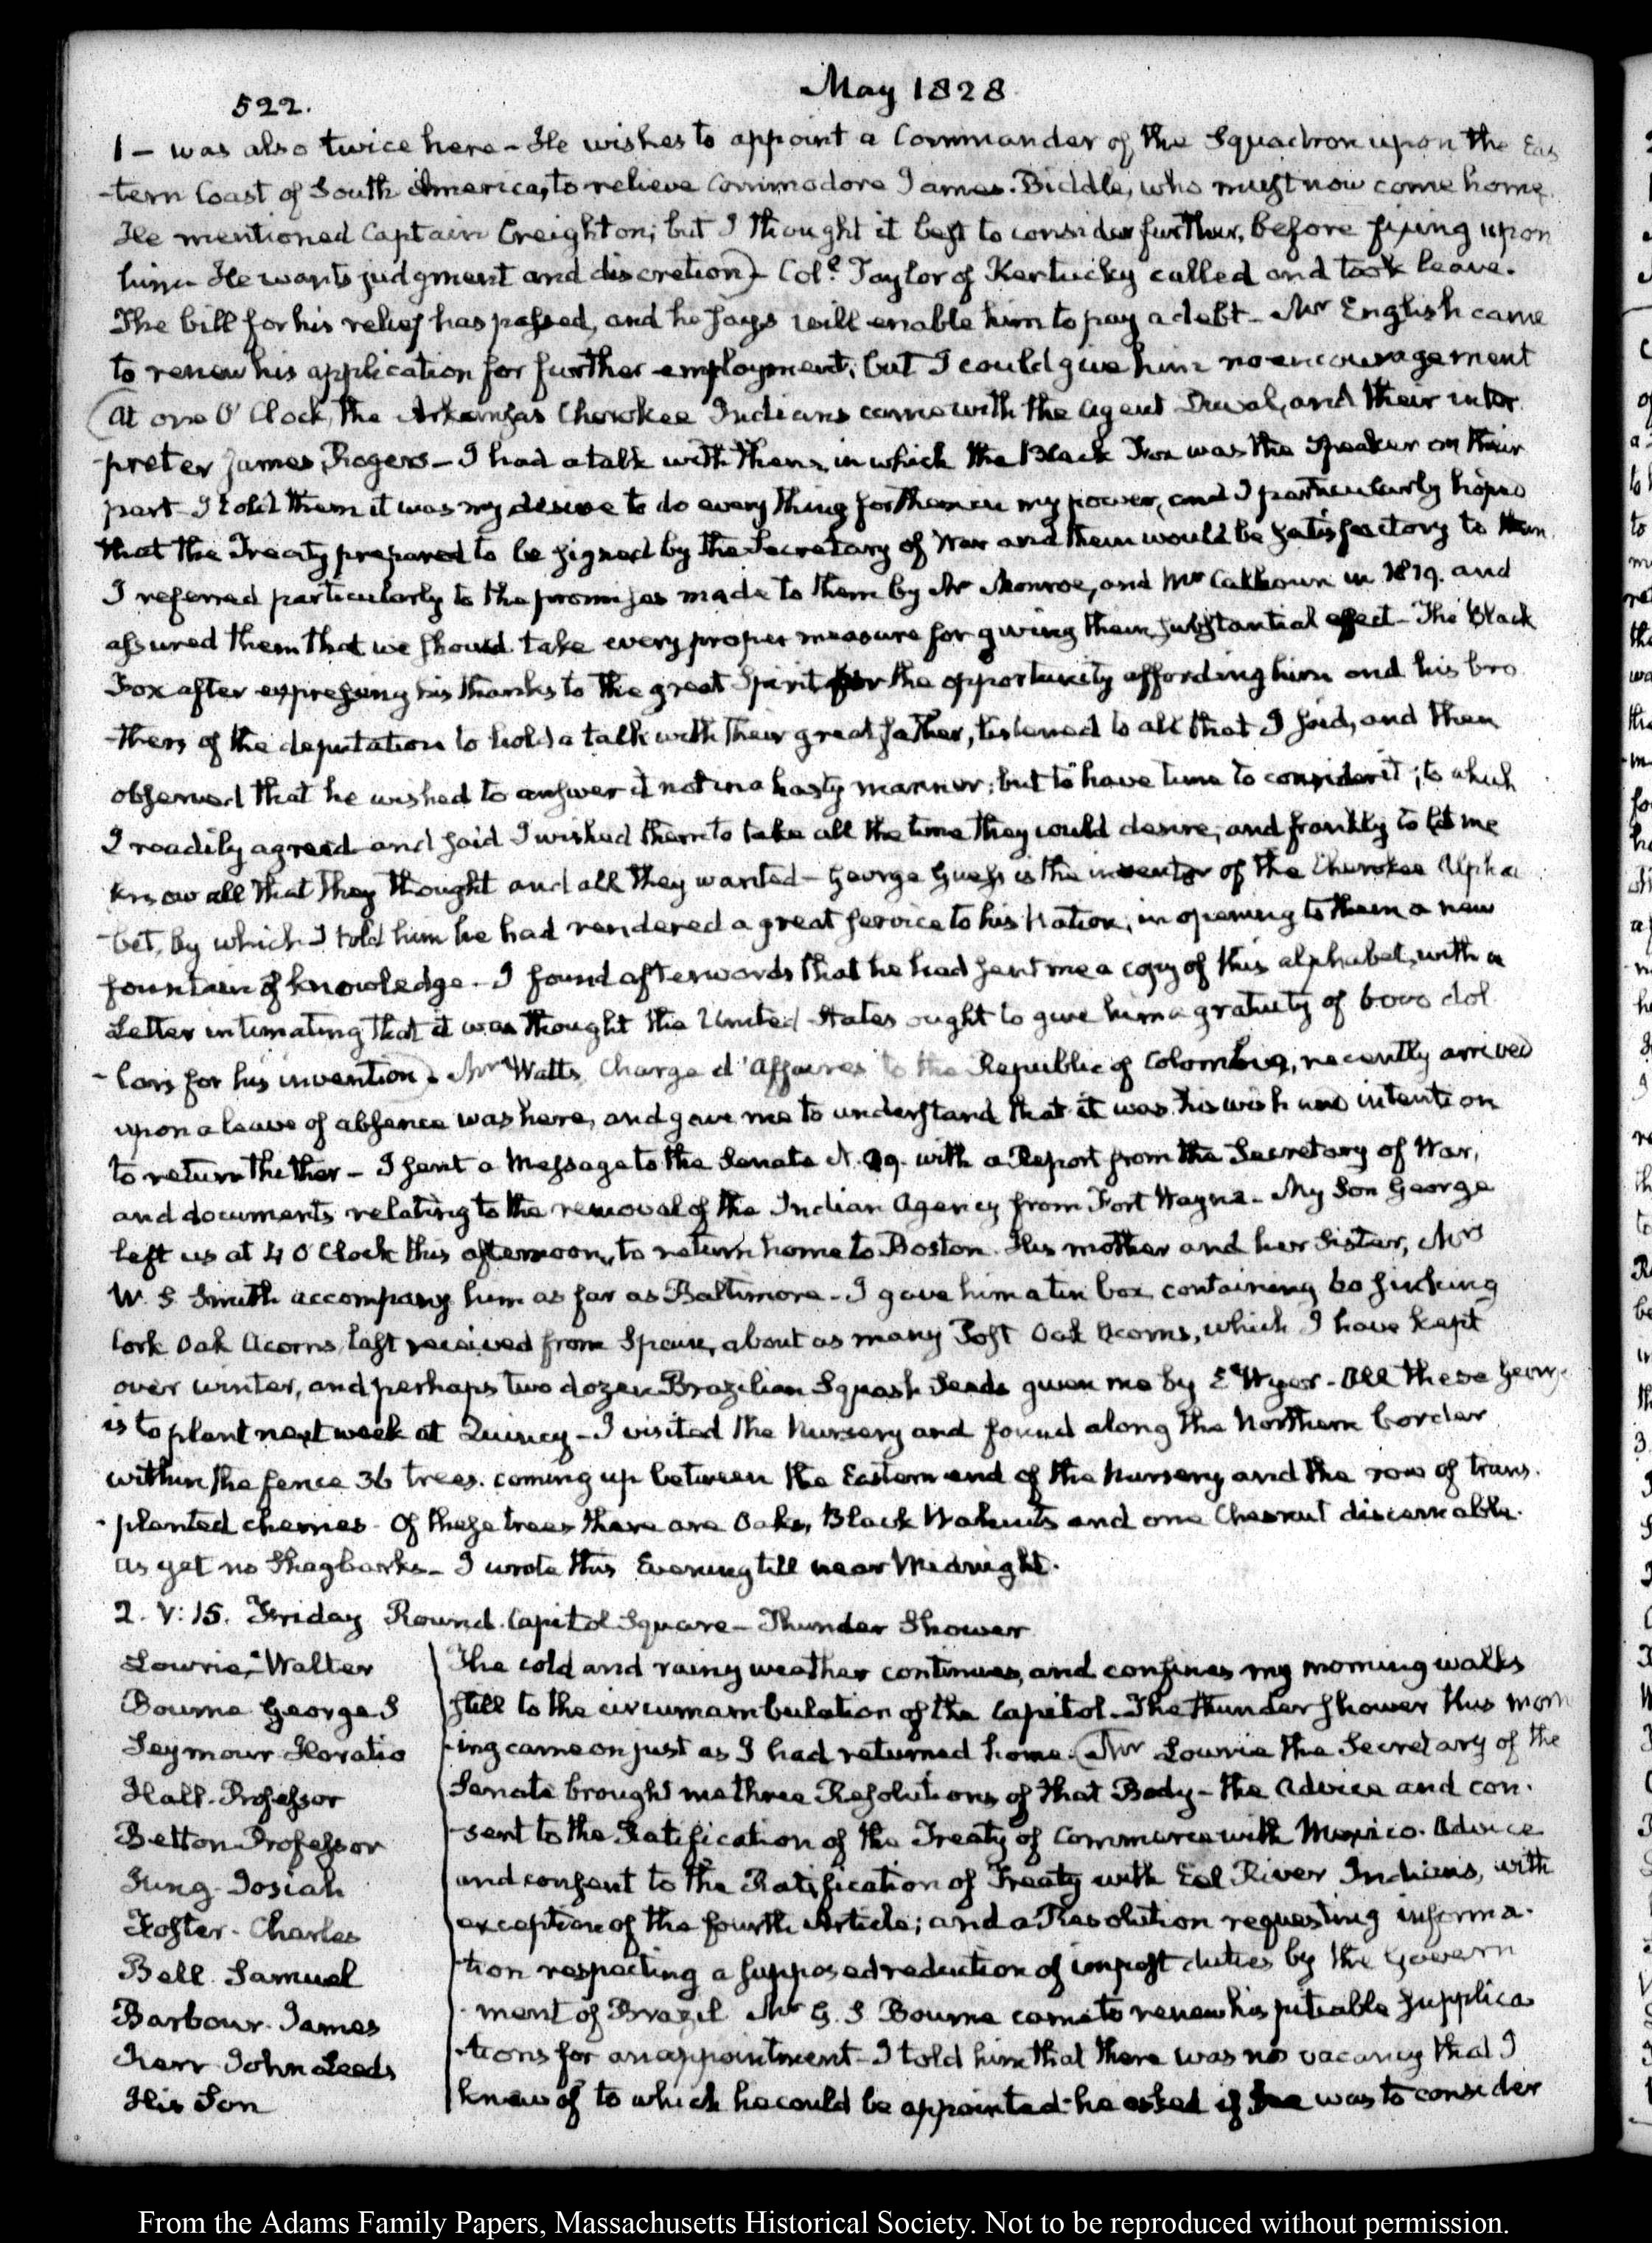 May 1828
522.
1 – was also twice here – He wishes to appoint a Commander of the Squadron upon the Eas
-tern Coast of South America, to relieve Commodore James Biddle, who must now come home
He mentioned Captain Creighton; but I thought it best to consider further, before fixing upon
him. He wants judgment and discretion) – Col.l Taylor of Kentucky called and took leave.
The bill for his relief has passed, and he says will enable him to pay a debt – Mr English came
to renew his application for further employment; but I could give him no encouragement
(At one O'Clock, the Arkansas Cherokee Indians came with the Agent Duval, and their inter
-preter James Rogers – I had a talk with them, in which the Black Fox was the Speaker on their
part – I told them it was my desire to do every thing for them in my power, and I particularly hoped
that the Treaty prepared to be signed by the Secretary of War and them would be satisfactory to them
I referred particularly to the promises made to them by Mr Monroe, and Mr Calhoun in 1819. and
assured them that we should take every proper measure for giving them substantial effect – The Black
Fox after expressing his thanks to the great Spirit for the opportunity affording him and his bro
-thers of the deputation to hold a talk with their great father, listened to all that I said, and then
observed that he wished to answer it not in a hasty manner; but to have time to consider it; to which
I readily agreed and said I wished them to take all the time they could desire, and frankly to let me
know all that they thought and all they wanted – George Guess is the inventor of the Cherokee Alpha
-bet, by which I told him he had rendered a great service to his Nation, in opening to them a new
fountain of knowledge – I found afterwards that he had sent me a copy of this alphabet, with a
Letter intimating that it was thought the United States ought to give him a gratuity of 6000 dol
-lars for his invention) Mr Watts, Chargé d'Affaires to the Republic of Colombia, recently arrived
upon a leave of absence was here, and gave me to understand that it was his wish and intention
to return thither – I sent a Message to the Senate N. 29. with a Report from the Secretary of War,
and documents relating to the removal of the Indian Agency from Fort Wayne – My Son George
left us at 4 O'Clock this afternoon, to return home to Boston. His mother and her Sister, Mrs
W. S. Smith accompany him as far as Baltimore – I gave him a tin box containing 60
Cork Oak Acorns, last received from Spain, about as many Post Oak Acorns, which I have kept
over winter, and perhaps two dozen Brazilian Squash Seeds given me by Ed Wyer – All these George
is to plant next week at Quincy – I visited the Nursery and found along the Northern border
within the fence 36 trees coming up between the Eastern end of the Nursery and the row of trans-
-planted cherries – Of these trees there are Oaks, Black Walnuts and one Chesnut discernable.
as yet no Shagbarks – I wrote this Evening till near Midnight.
2. V: 15. Friday Round Capitol Square – Thunder Shower
Lowrie, Walter
Bourne George S
Seymour Horatio
Hall Professor
Betton Professor
Jung Josiah
Foster Charles
Bell Samuel
Barbour James
Kerr John Leeds
His Son
The cold and rainy weather continues, and confines my morning walks
still to the circumambulation of the Capitol. The thunder shower this morn
-ing came on just as I had returned home. (Mr Lowrie the Secretary of the
Senate brought me three Resolutions of that Body – the Advice and con-
-sent to the Ratification of the Treaty of Commerce with Mexico. Advice
and consent to the Ratification of Treaty with Eel River Indians, with
exception of the fourth Article; and a Resolution requesting informa-
-tion respecting a supposed reduction of impost duties by the Govern
-ment of Brazil Mr G. S. Bourne came to renew his pitiable supplica
-tions for an appointment – I told him that there was no vacancy that I
knew of to which he could be appointed – he asked if he was to consider
From the Adams Family Papers, Massachusetts Historical Society. Not to be reproduced without permission.